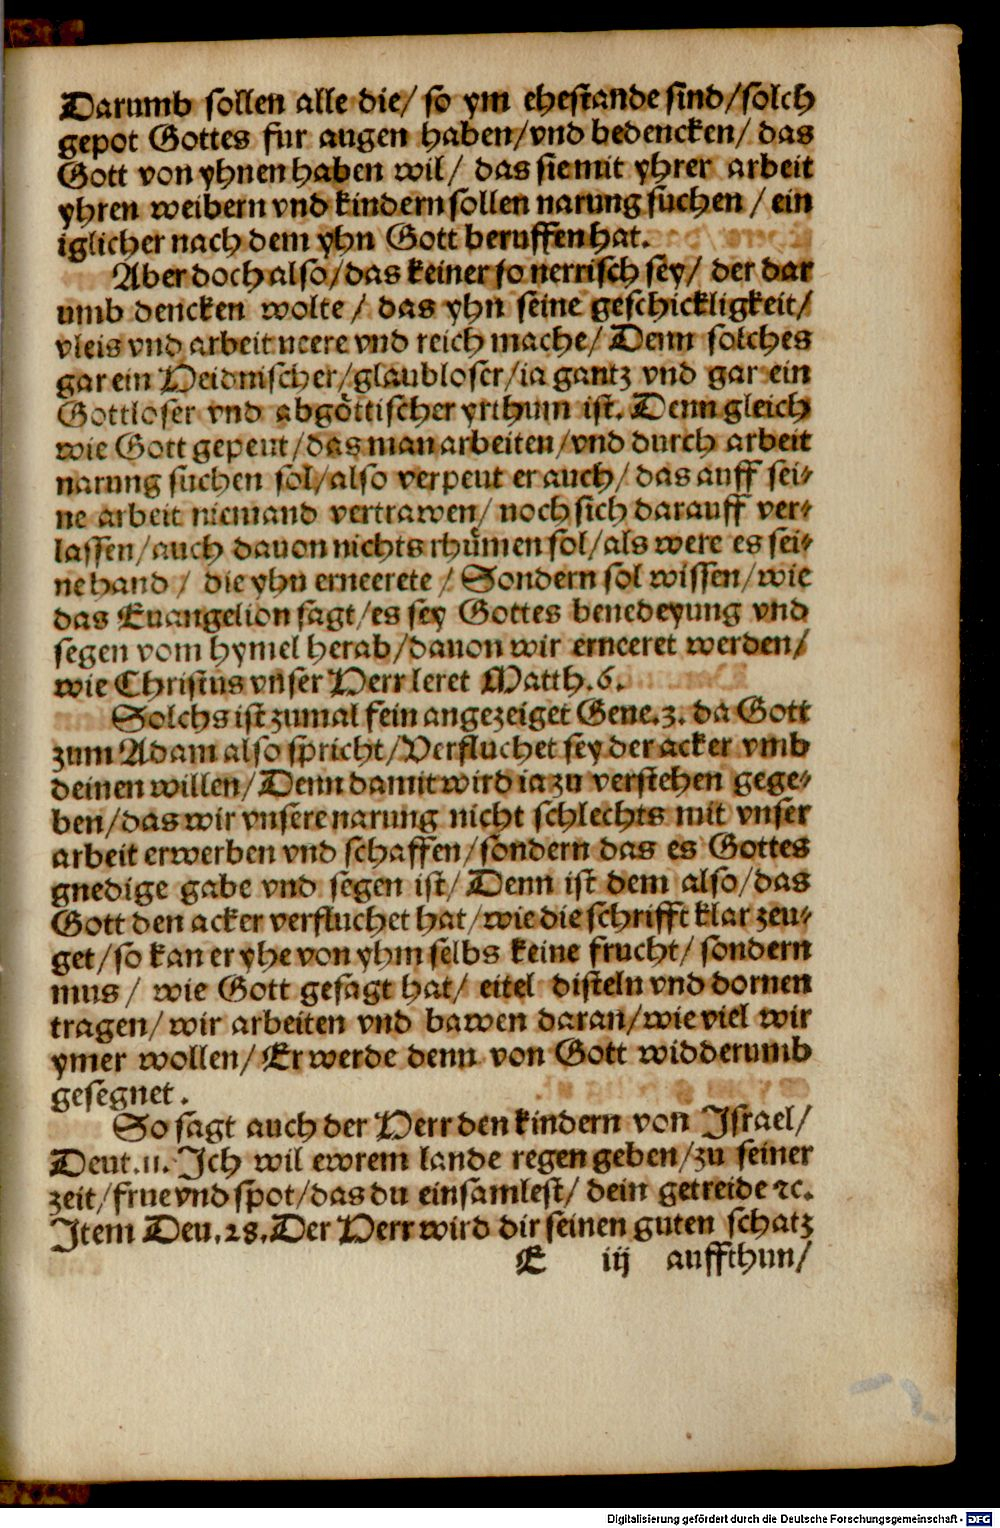 Darumb sollen alle die/ so ym ehestande sind/solch
gepot Gottes fur augen haben/vnd bedencken/ das
Gott von yhnen haben wil/ das sie mit yhrer arbeit
yhren weibern vnd kindern sollen narung suchen/ ein
iglicher nach dem yhn Gott beruffen hat.
Aber doch also/das keiner so nerrisch sey/ der dar
umb dencken wolte/ das yhn seine geschickligkeit/
vleis vnd arbeit neere vnd reich mache/ Denn solches
gar ein Heidnischer/glaubloser/ia gantz vnd gar ein
Gottloser vnd abgöttischer yrthum ist. Denn gleich
wie Gott gepeut/das man arbeiten/vnd durch arbeit
narung suchen sol/also verpeut er auch/ das auff sei-
ne arbeit niemand vertrawen/ noch sich darauff ver-
lassen/auch dauon nichts rhůmen sol/als were es sei-
ne hand/ die yhn erneerete/ Sondern sol wissen/wie
das Euangelion sagt/es sey Gottes benedeyung vnd
segen vom hymel herab/dauon wir erneeret werden/
wie Christus vnser Herr leret Matth.6.
Solchs ist zumal fein angezeiget Gene.3. da Gott
zum Adam also spricht/Verfluchet sey der acker vmb
deinen willen/Denn damit wird ia zu verstehen gege-
ben/das wir vnsere narung nicht schlechts mit vnser
arbeit erwerben vnd schaffen/sondern das es Gottes
gnedige gabe vnd segen ist/ Denn ist dem also/das
Gott den acker verfluchet hat/wie die schrifft klar zeu-
get/so kan er yhe von yhm selbs keine frucht/ sondern
mus/ wie Gott gesagt hat/ eitel disteln vnd dornen
tragen/wir arbeiten vnd bawen daran/wie viel wir
ymer wollen/ Er werde denn von Gott widderumb
gesegnet.
So sagt auch der Herr den kindern von Israel/
Deut.11. Ich wil ewrem lande regen geben/zu seiner
zeit/frue vnd spot/das du einsamlest/ dein getreide ꝛc.
Item Deu.28.Der Herr wird dir seinen guten schatz
E iij auffthun/
Digitalisierung gefördert durch die Deutsche Forschungsgemeinschaft - DFG